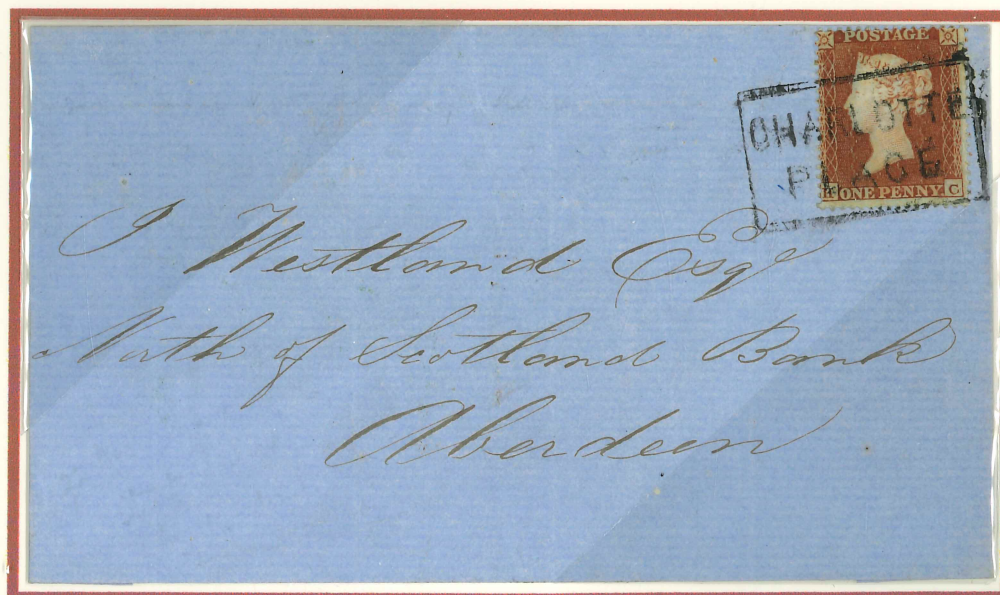 POSTAGE
CHARLOTTE
PLACE
ONE PENNY C
J Westland Esqe
North of Scotland Bank
Aberdeen